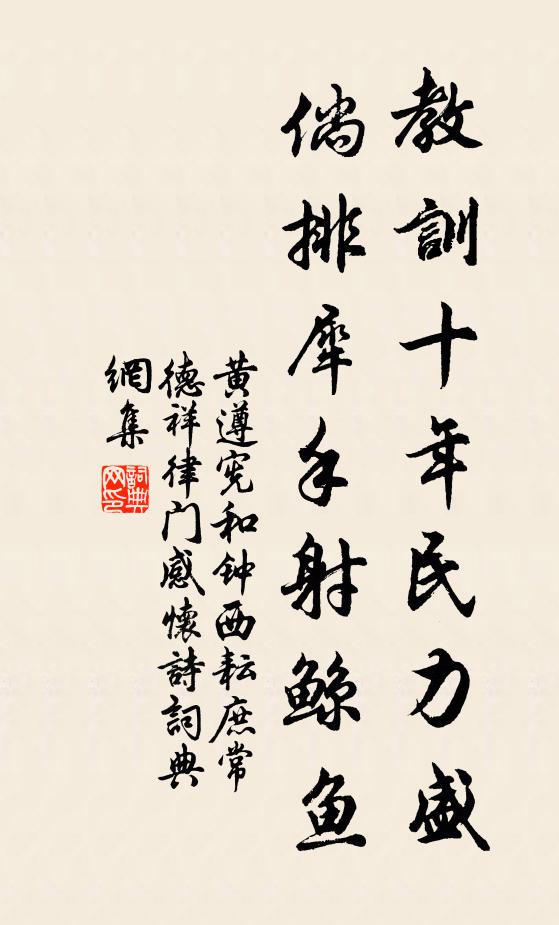 教訓十年民力盛
倘排犀手射鲸鱼
黄遵宪和钟西耘庶常
德祥律门感懷詩詞典
網集
詞典
网印